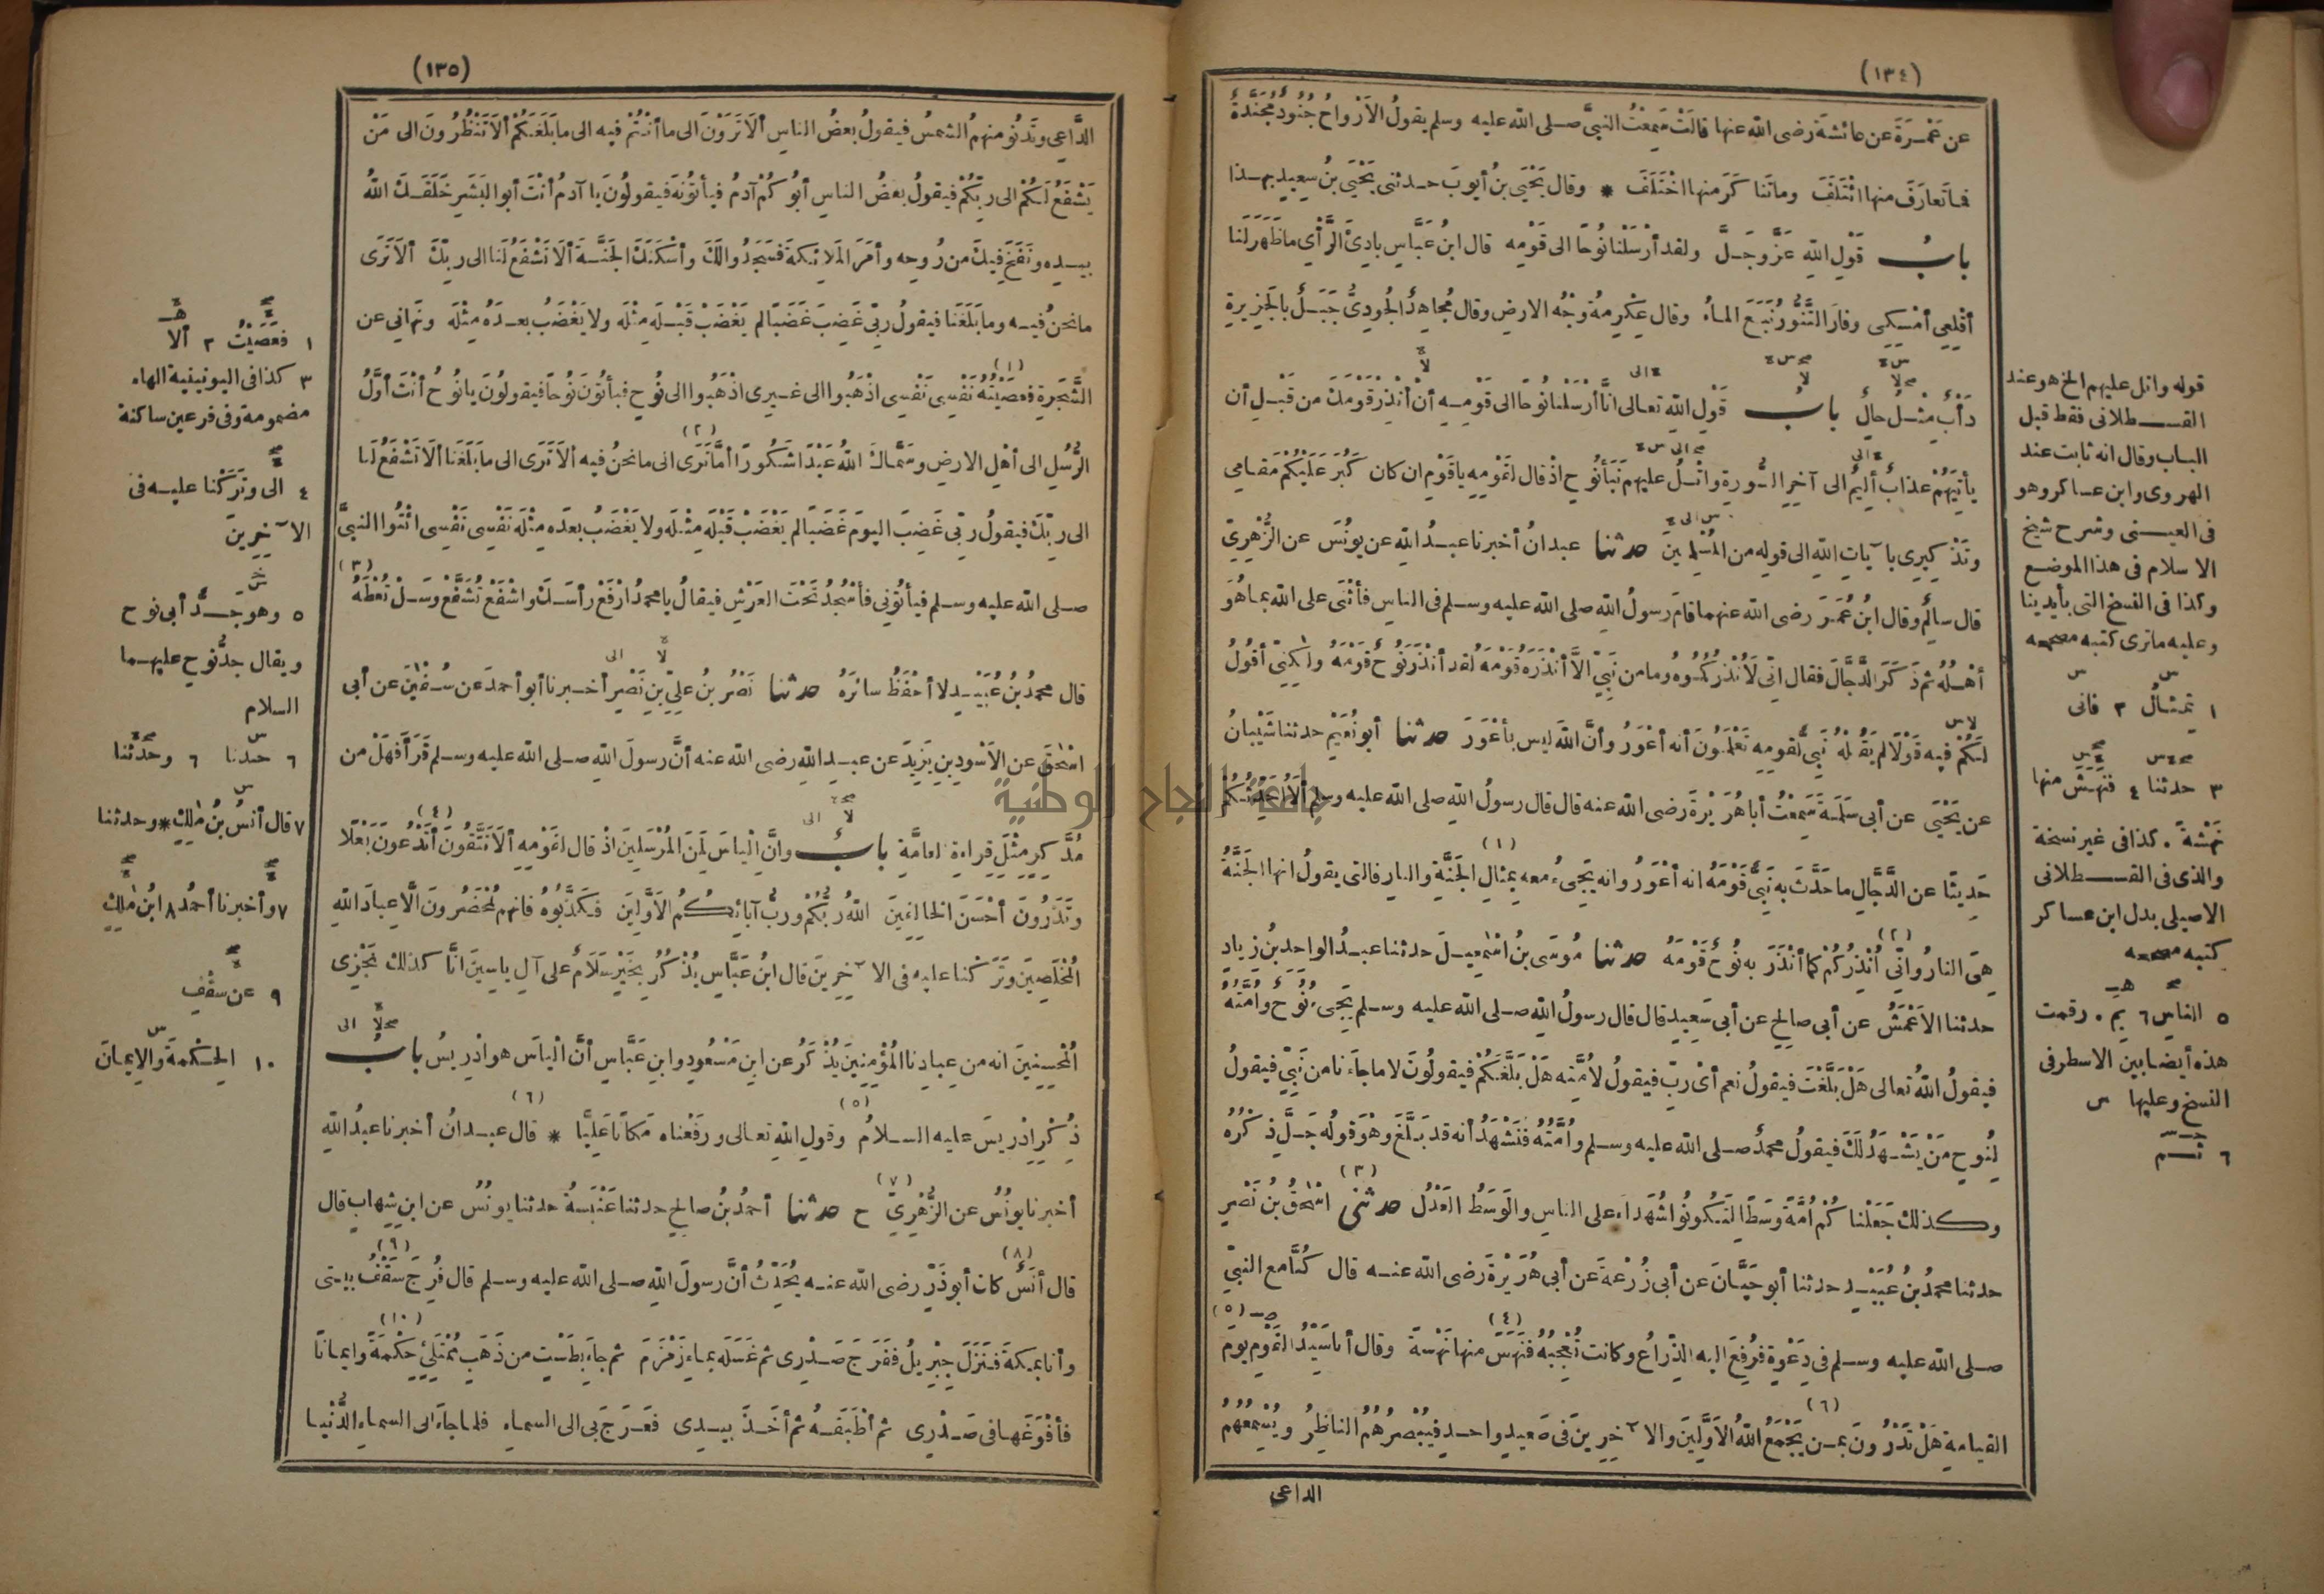 (١٣٤)
عن عَمْرَةَ عن عائشةَ رضى الله عنها قالَتْ سَمِعْتُ النبىَّ صلى الله عليه وسلم يقولُ الأَرْواحُ جُنُودٌ مُجَنَّدَةٌ
فما تَعارَفَ منها ائْتَلَفَ وما تَناكَرَ منها اخْتَلَفَ * وقال يَحْيَى بنُ أيوبَ حدثنى يَحْيَى بنُ سعيدٍ بهذا
بابُ قَوْلِ اللهِ عَزَّ وجَلَّ ولقد أرْسَلْنا نُوحًا الى قَوْمِه قال ابنُ عَبَّاسٍ بادِئَ الرَّأْىِ ما ظَهَرَ لَنا
أقْلِعِى أمْسِكِى وفارَ التَّنُّورُ نَبَعَ الماءُ وقال عِكْرِمةُ وَجْهُ الارضِ وقال مُجاهِدٌ الجُودِىُّ جَبَلٌ بالجَزِيرةِ
دَأْبٌ مِثْلُ حالٌ بابُ قَوْلِ اللهِ تعالى انَّا أرْسَلْنا نُوحًا الى قَوْمِهِ أنْ أنْذِرْ قَوْمَكَ من قَبْلِ أن
يأْتِيَهُمْ عذابٌ أليمٌ الى آخرِ السُّورةِ واتْلُ عليهم نَبَأَ نُوحٍ اذْ قال لِقَوْمِهِ ياقَوْمِ ان كان كَبُرَ عَلَيْكُمْ مَقامى
وتَذْكِيرِى بآياتِ اللهِ الى قوله من المُسْلِمِينَ حدثنا عبدانُ أخبرنا عبدُ اللهِ عن يونُسَ عن الزُّهْرِىِّ
قال سالِمٌ وقال ابنُ عُمَرَ رضى الله عنهما قامَ رسولُ اللهِ صلى الله عليه وسلم فى الناسِ فأَثْنَى على اللهِ بما هُوَ
أهْلُهُ ثم ذَكَرَ الدَّجَّالَ فقال انِّى لَأُنْذِرُكُمُوهُ وما من نَبِىٍّ الَّا أنْذَرَهُ قَوْمَهُ لقد أنْذَرَ نُوحٌ قَوْمَهُ ولكِنِّى أقولُ
لَكُمْ فيه قَوْلًا لم يَقُلْهُ نَبِىٌّ لقومِهِ تَعْلَمُونَ أنه أعْوَرُ وأنَّ اللهَ ليس بأعْوَرَ حدثنا أبو نُعَيْمٍ حدثنا شَيْبانُ
عن يَحْيَى عن أبى سَلَمَةَ سَمِعْتُ أباهُرَيْرةَ رضى الله عنه قال قال رسولُ اللهِ صلى الله عليه وسلم ألَا أُحَدِّثُكُمْ
(١)
حَدِيثًا عن الدَّجَّالِ ما حَدَّثَ به نَبِىٌّ قَوْمَهُ انه أعْوَرُ وانه يَجِىءُ معه بِمِثالِ الجَنَّةِ والنارِ فالتى يقولُ انها الجَنَّةُ
(٢)
هىَ النارُ وانِّى أُنْذِرُكُمْ كما أنْذَرَ به نُوحٌ قَوْمَهُ حدثنا مُوسَى بنُ اسْمٰعِيلَ حدثنا عبدُ الواحدِ بنُ زِيادٍ
حدثنا الاَعْمَشُ عن أبى صالحٍ عن أبى سَعِيدٍ قال قال رسولُ اللهِ صلى الله عليه وسلم يَجِىءُ نُوحٌ وأُمَّتُهُ
فيقولُ اللهُ تعالى هَلْ بَلَّغْتَ فيقولُ نعم أىْ رَبِّ فيقولُ لاُمَّتِهِ هَلْ بَلَّغَكُمْ فيقولُونَ لا ما جاءَنا من نَبِىٍّ فيقولُ
لِنُوحٍ مَنْ يَشْهَدُ لَكَ فيقولُ محمدٌ صلى الله عليه وسلم وأُمَّتُهُ فنَشْهَدُ أنه قد بَلَّغَ وهْوَ قولُهُ جَلَّ ذِكْرُهُ
(٣)
وكذلك جَعَلْناكُمْ أُمَّةً وسَطًا لتَكُونُوا شُهَداءَ على الناسِ والوَسَطُ العَدْلُ حدثنى اسْحٰقُ بنُ نَصْرٍ
حدثنا محمدُ بنُ عُبَيْدٍ حدثنا أبو حَيَّانَ عن أبى زُرْعةَ عن أبى هُرَيْرةَ رضى الله عنه قال كُنَّا مع النبىِّ
(٤) (٥)
صلى الله عليه وسلم فى دَعْوةٍ فرُفِعَ اليه الذِّراعُ وكانت تُعْجِبُهُ فنَهَسَ منها نَهْسَةً وقال أنا سَيِّدُ القَوْمِ يومَ
(٦)
القيامةِ هَلْ تَدْرُونَ بمن يَجْمَعُ اللهُ الاَوَّلِينَ والآخِرِينَ فى صَعِيدٍ واحدٍ فيُبْصِرُهُمُ الناظِرُ ويُسْمِعُهُمُ
الداعى
قوله واتل عليهم الخ هو عند
القسطلانى فقط قبل
الباب وقال انه ثابت عند
الهروى وابن عساكر وهو
فى العينى وشرح شيخ
الاسلام فى هذا الموضع
وكذا فى النسخ التى بأيدينا
وعليه ماترى كتبه مصححه
١ تمثالُ ٢ فانى
٣ حدثنا ٤ فنَهَشَ منها
نَهْشةً . كذا فى غير نسخة
والذى فى القسطلانى
الاصيلى بدل ابن عساكر
كتبه مصححه
٥ الناس ٦ بِم . رقمت
هذه أيضا بين الاسطر فى
النسخ وعليها س
(١٣٥)
الدَّاعِى وتَدْنُو منهمُ الشمسُ فيقولُ بعضُ الناسِ ألَا تَرَوْنَ الى ما أنْتُمْ فيه الى ما بَلَغَكُمْ ألَا تَنْظُرُونَ الى مَنْ
يَشْفَعُ لَكُمْ الى رَبِّكُمْ فيقولُ بعضُ الناسِ أبُوكُمْ آدمُ فيأتُونَهُ فيقولُونَ يا آدمُ أنْتَ أبو البَشَرِ خَلَقَكَ اللهُ
بيدِه ونَفَخَ فِيكَ من رُوحِه وأمَرَ المَلائكةَ فسَجَدُوا لَكَ وأسْكَنَكَ الجَنَّةَ ألَا تَشْفَعُ لَنا الى رَبِّكَ ألَا تَرَى
ما نحنُ فيه وما بَلَغَنا فيقولُ رَبِّى غَضِبَ غَضَبًا لم يَغْضَبْ قَبْلَهُ مِثْلَه ولا يَغْضَبُ بعدَهُ مِثْلَه ونَهانى عن
(١)
الشَّجَرةِ فعَصَيْتُهُ نَفْسِى نَفْسِى اذْهَبُوا الى غيرِى اذْهَبُوا الى نُوحٍ فيأتُونَ نُوحًا فيقولُونَ يانُوحُ أنْتَ أوَّلُ
(٢)
الرُّسُلِ الى أهْلِ الارضِ وسَمَّاكَ اللهُ عَبْدًا شَكُورًا أمَا تَرَى الى ما نحنُ فيه ألَا تَرَى الى ما بَلَغَنا ألَا تَشْفَعُ لَنا
الى رَبِّكَ فيقولُ رَبِّى غَضِبَ اليومَ غَضَبًا لم يَغْضَبْ قَبْلَهُ مِثْلَه ولا يَغْضَبُ بعدَه مِثْلَه نَفْسِى نَفْسِى ائْتُوا النبىَّ
(٣)
صلى الله عليه وسلم فيأتُونِى فأسْجُدُ تَحْتَ العَرْشِ فيقالُ يا محمدُ ارْفَعْ رأسَكَ واشْفَعْ تُشَفَّعْ وسَلْ تُعْطَهُ
قال محمدُ بنُ عُبَيْدٍ لا أحْفَظُ سائرَهُ حدثنا نَصْرُ بنُ علِىِّ بنِ نَصْرٍ أخبرنا أبو أحمدَ عن سُفْينَ عن أبى
اسْحٰقَ عن الاَسْودِ بنِ يَزِيدَ عن عبدِ اللهِ رضى الله عنه أنَّ رسولَ اللهِ صلى الله عليه وسلم قَرَأَ فهَلْ من
(٤)
مُدَّكِرٍ مِثْلَ قِراءةِ العامَّةِ بابُ وانَّ الْياسَ لَمِنَ المُرْسَلِينَ اذْ قال لِقَوْمِهِ ألَا تَتَّقُونَ أتَدْعُونَ بَعْلًا
وتَذَرُونَ أحْسَنَ الخالِقِينَ اللهُ رَبُّكُمْ ورَبُّ آبائكُمُ الاَوَّلِينَ فكَذَّبُوهُ فانهم لَمُحْضَرُونَ الَّا عِبادَ اللهِ
المُخْلَصِينَ وتَرَكْنا عليه فى الآخِرِينَ قال ابنُ عَبَّاسٍ يُذْكَرُ بخَيْرٍ سَلامٌ على آلِ ياسِينَ انَّا كذلك نَجْزِى
المُحْسِنِينَ انه من عِبادِنا المُؤْمِنِينَ يُذْكَرُ عن ابنِ مَسْعُودٍ وابنِ عَبَّاسٍ أنَّ الْياسَ هو ادْرِيسُ بابُ
(٥) (٦)
ذِكْرِ ادْرِيسَ عليه السلامُ وقولِ اللهِ تعالى ورَفَعْناه مَكانًا عَلِيًّا * قال عبدانُ أخبرنا عبدُ اللهِ
(٧)
أخبرنا يونُسُ عن الزُّهْرِىِّ ح حدثنا أحمدُ بنُ صالحٍ حدثنا عَنْبَسةُ حدثنا يونُسُ عن ابنِ شِهابٍ قال
(٨) (٩)
قال أنَسٌ كان أبو ذَرٍّ رضى الله عنه يُحَدِّثُ أنَّ رسولَ اللهِ صلى الله عليه وسلم قال فُرِجَ سَقْفُ بيتى
(١٠)
وأنا بمكةَ فنَزَلَ جِبْرِيلُ ففَرَجَ صَدْرِى ثم غَسَلَه بماءِ زَمْزَمَ ثم جاءَ بطَسْتٍ من ذَهَبٍ مُمْتَلِئٍ حِكْمَةً وايمانًا
فأفْرَغَها فى صَدْرِى ثم أطْبَقَهُ ثم أخَذَ بيدِى فعَرَجَ بى الى السماءِ فلما جاءَ الى السماءِ الدُّنْيا
١ فعَصَيْتُ ٢ ألا
٣ كذا فى اليونينية الهاء
مضمومة وفى فرعين ساكنة
٤ الى وتَرَكْنا عليه فى
الآخِرِينَ
٥ وهو جَدُّ أبى نوح
ويقال جدُّ نوح عليهما
السلام
٦ حدثنا ٦ وحدَّثنا
٧ قال أنسُ بنُ مٰلِكٍ * وحدثنا
٧ وأخبرنا أحمدُ ٨ ابنُ مٰلِكٍ
٩ عن سقْفِ
١٠ الحِكْمةَ والايمانَ
جامعة النجاح الوطنية